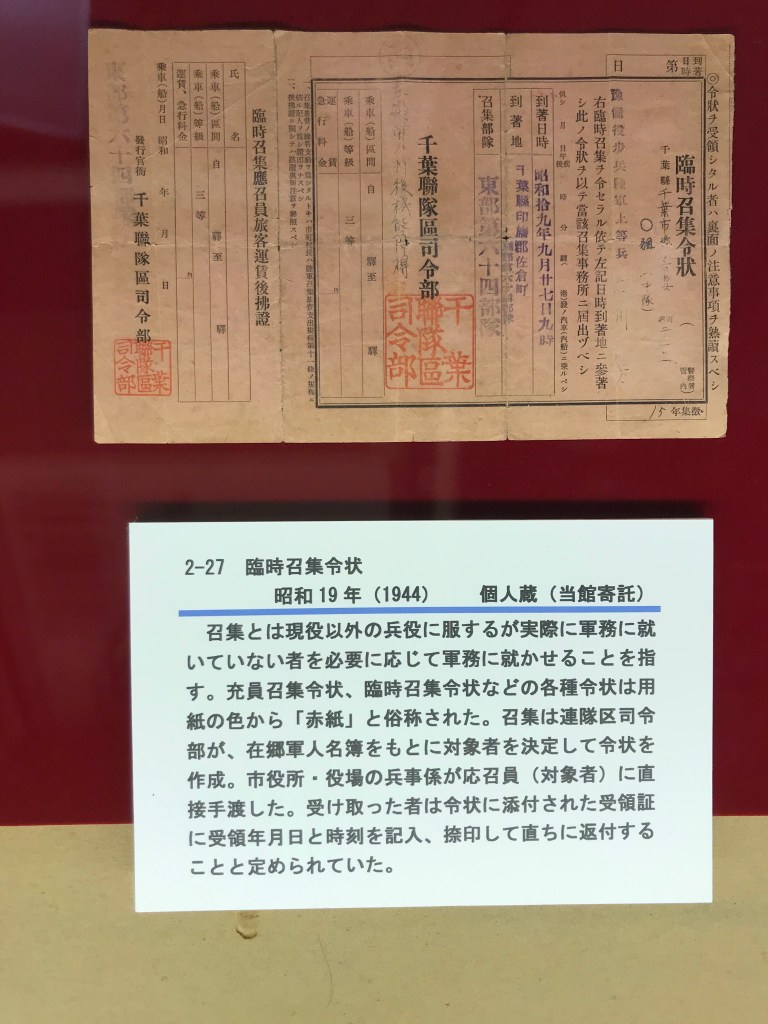 ◎令狀ヲ受領シタル者ハ裏面ノ注意事項ヲ熟讀スベシ
到著日時
第
日
徴集年
15
臨時召集令狀
千葉縣千葉市
豫備役步兵陸軍上等兵
右臨時召集ヲ令セラル依テ左記日時到著地ニ參著
シ此ノ令狀ヲ以テ當該召集事務所ニ屆出ヅベシ
到著日時
昭和拾九年九月廿七日九時
到著地
千葉縣印旛郡佐倉町
召集部隊
東部第六十四部隊
千葉聯隊區司令部
千葉聯隊區司令部
乘車(船)區間 自 驛至 驛
乘車(船)等級 三等
運賃
急行料金
臨時召集應召員旅客運賃後拂證
氏名
乘車(船)區間 自 驛至 驛
乘車(船)等級 三等
運賃、急行料金
乘車(船)月日 昭和 年 月 日
發行官衙 千葉聯隊區司令部
千葉聯隊區司令部
2-27 臨時召集令状
昭和19年(1944) 個人蔵(当館寄託)
召集とは現役以外の兵役に服するが実際に軍務に就
いていない者を必要に応じて軍務に就かせることを指
す。充員召集令状、臨時召集令状などの各種令状は用
紙の色から「赤紙」と俗称された。召集は連隊区司令
部が、在郷軍人名簿をもとに対象者を決定して令状を
作成。市役所・役場の兵事係が応召員(対象者)に直
接手渡した。受け取った者は令状に添付された受領証
に受領年月日と時刻を記入、捺印して直ちに返付する
ことと定められていた。